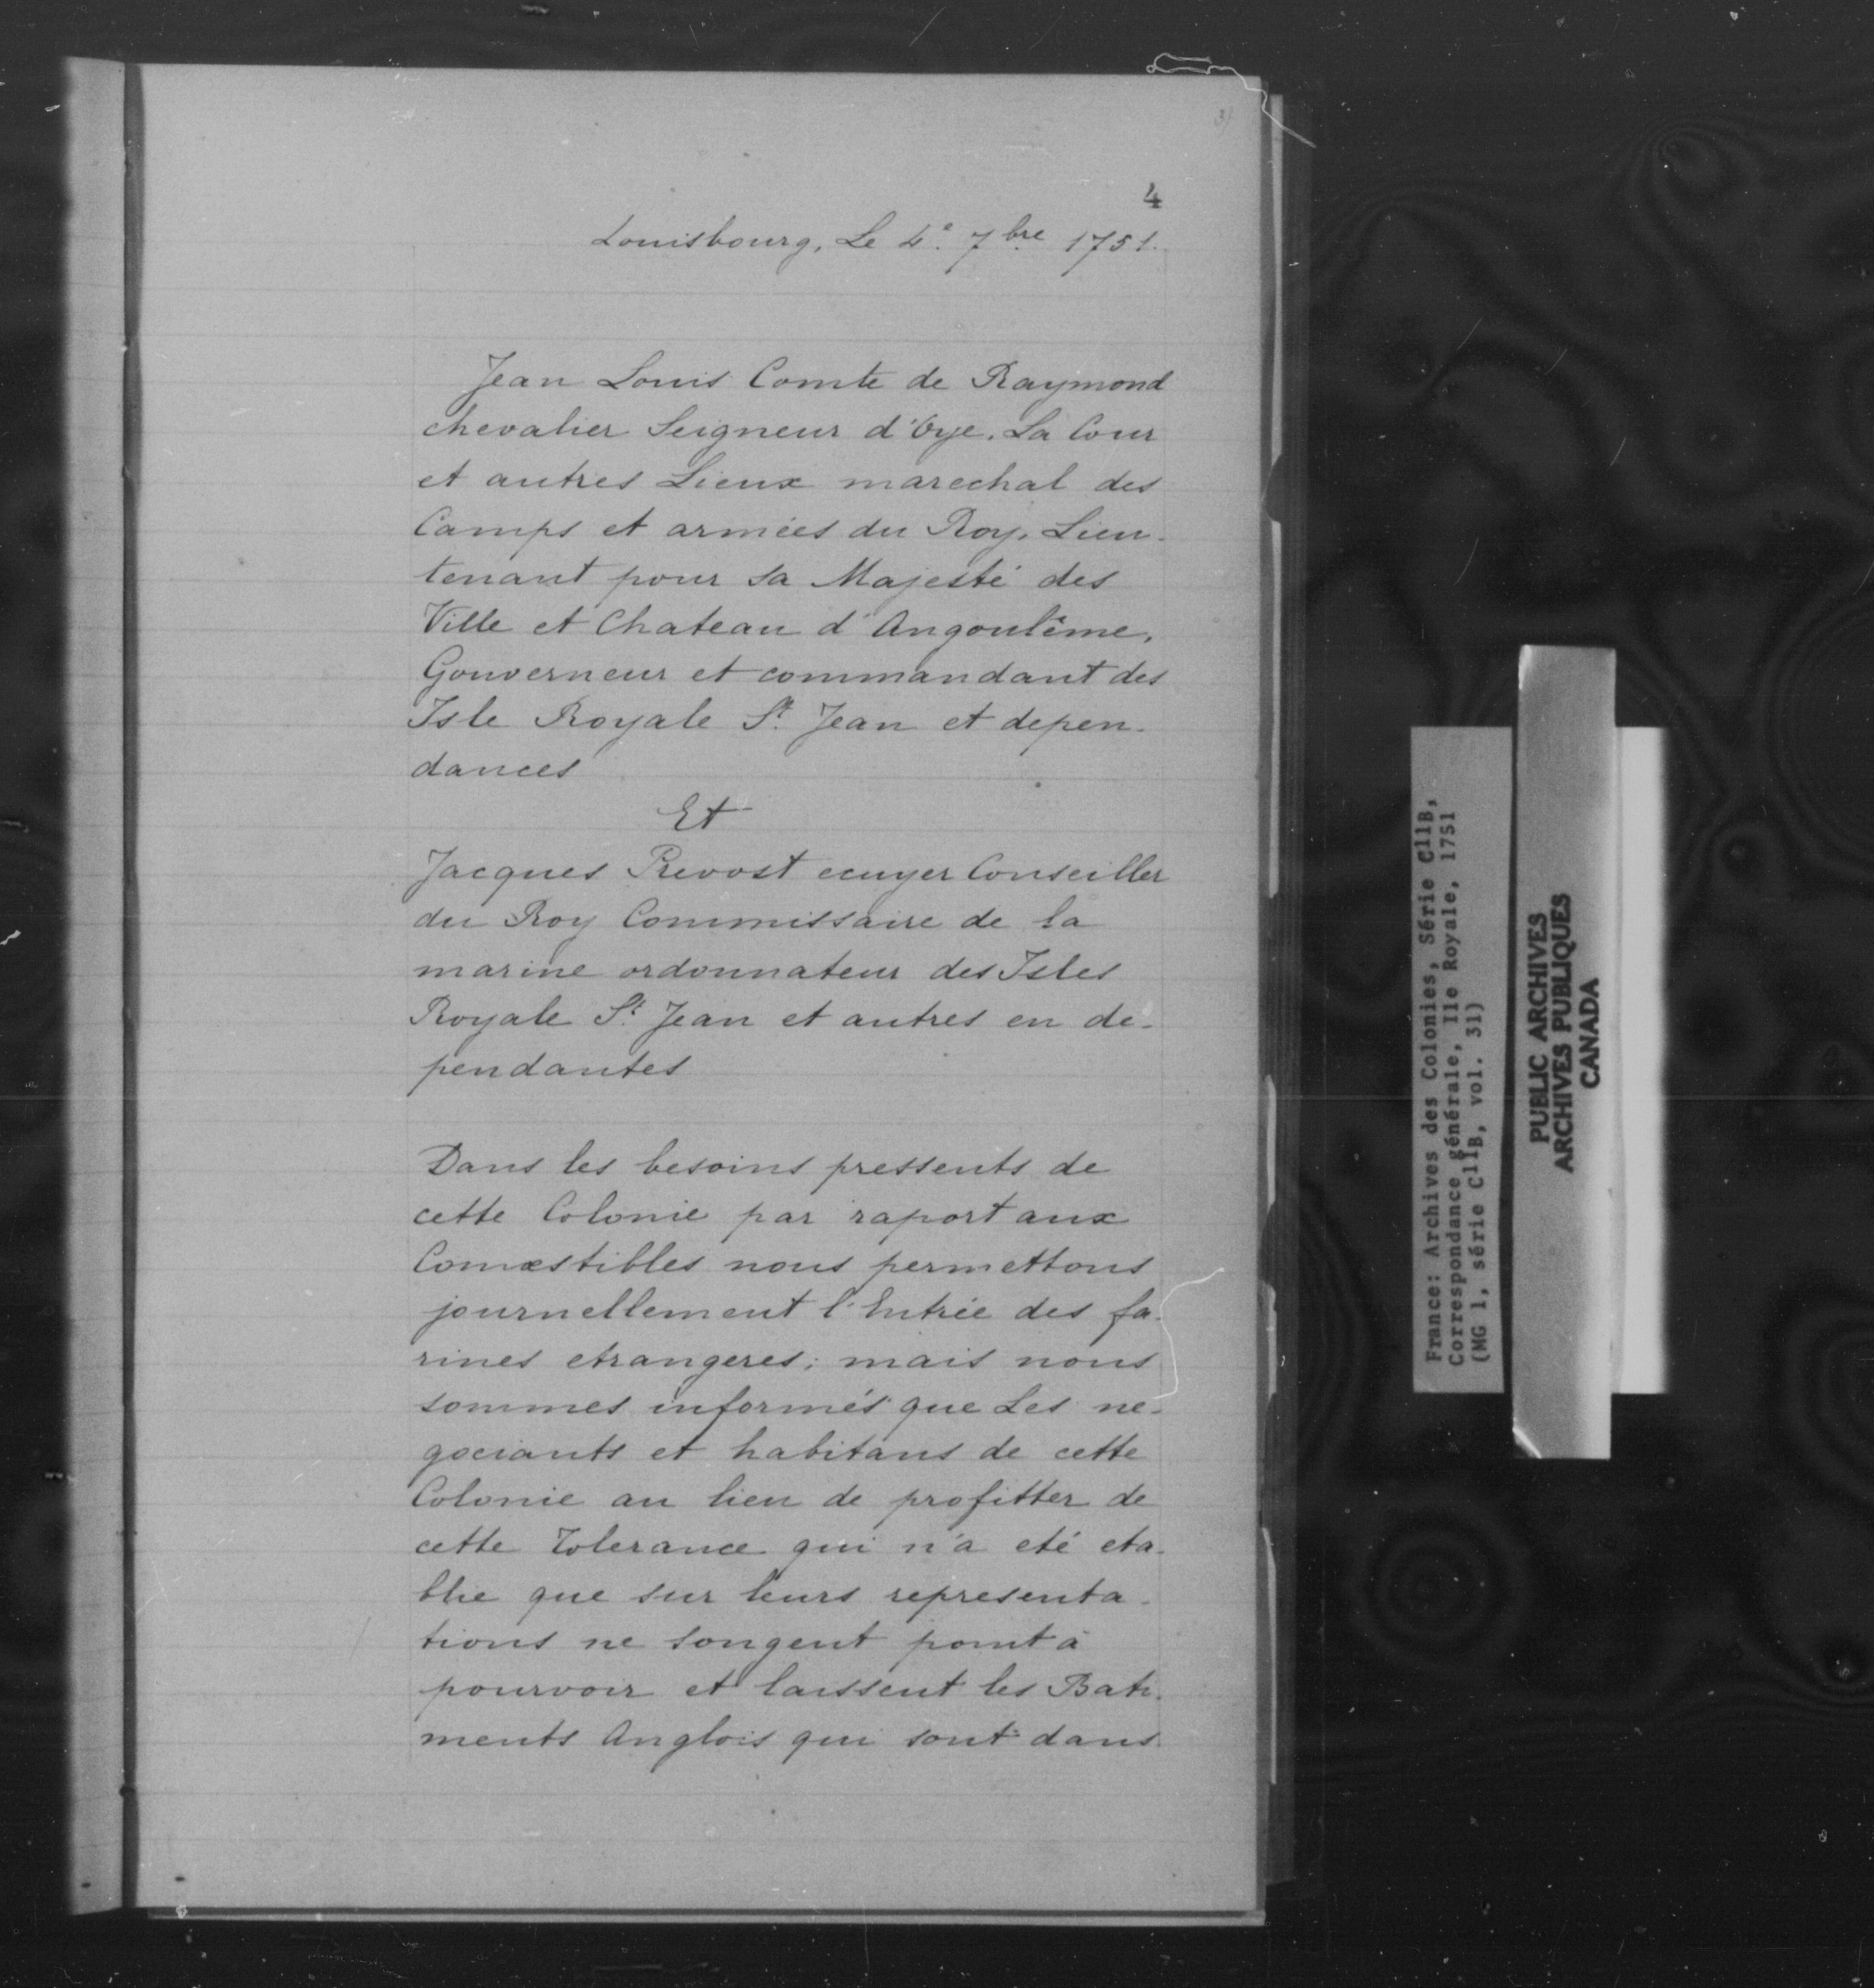 4
Louisbourg, Le 4e. 7bre 1751.
Jean Louis Comte de Raymond
chevalier Seigneur d'Oye, La Cour
et autres Lieux marechal des
Camps et armées du Roy, Lieu-
tenant pour sa Majesté des
Ville et Chateau d'Angoulême,
Gouverneur et commandant des
Isle Royale St. Jean et depen-
dances
Et
Jacques Prevost ecuyer Conseiller
du Roy Commissaire de la
marine ordonnateur des Isles
Royale St. Jean et autres en de-
pendantes
Dans les besoins pressents de
cette Colonie par raport aux
Comestibles nous permettons
journellement l'Entrée des fa-
rines etrangeres; mais nous
sommes informés que Les ne-
gociants et habitans de cette
Colonie au lieu de profitter de
cette Tolerance qui n'a eté eta-
blie que sur leurs representa-
tions ne songent point à
pourvoir et laissent les Bati-
ments Anglois qui sont dans
France: Archives des Colonies, Série C11B,
Correspondance générale, Ile Royale, 1751
(MG 1, série C11B, vol. 31)
PUBLIC ARCHIVES
ARCHIVES PUBLIQUES
CANADA